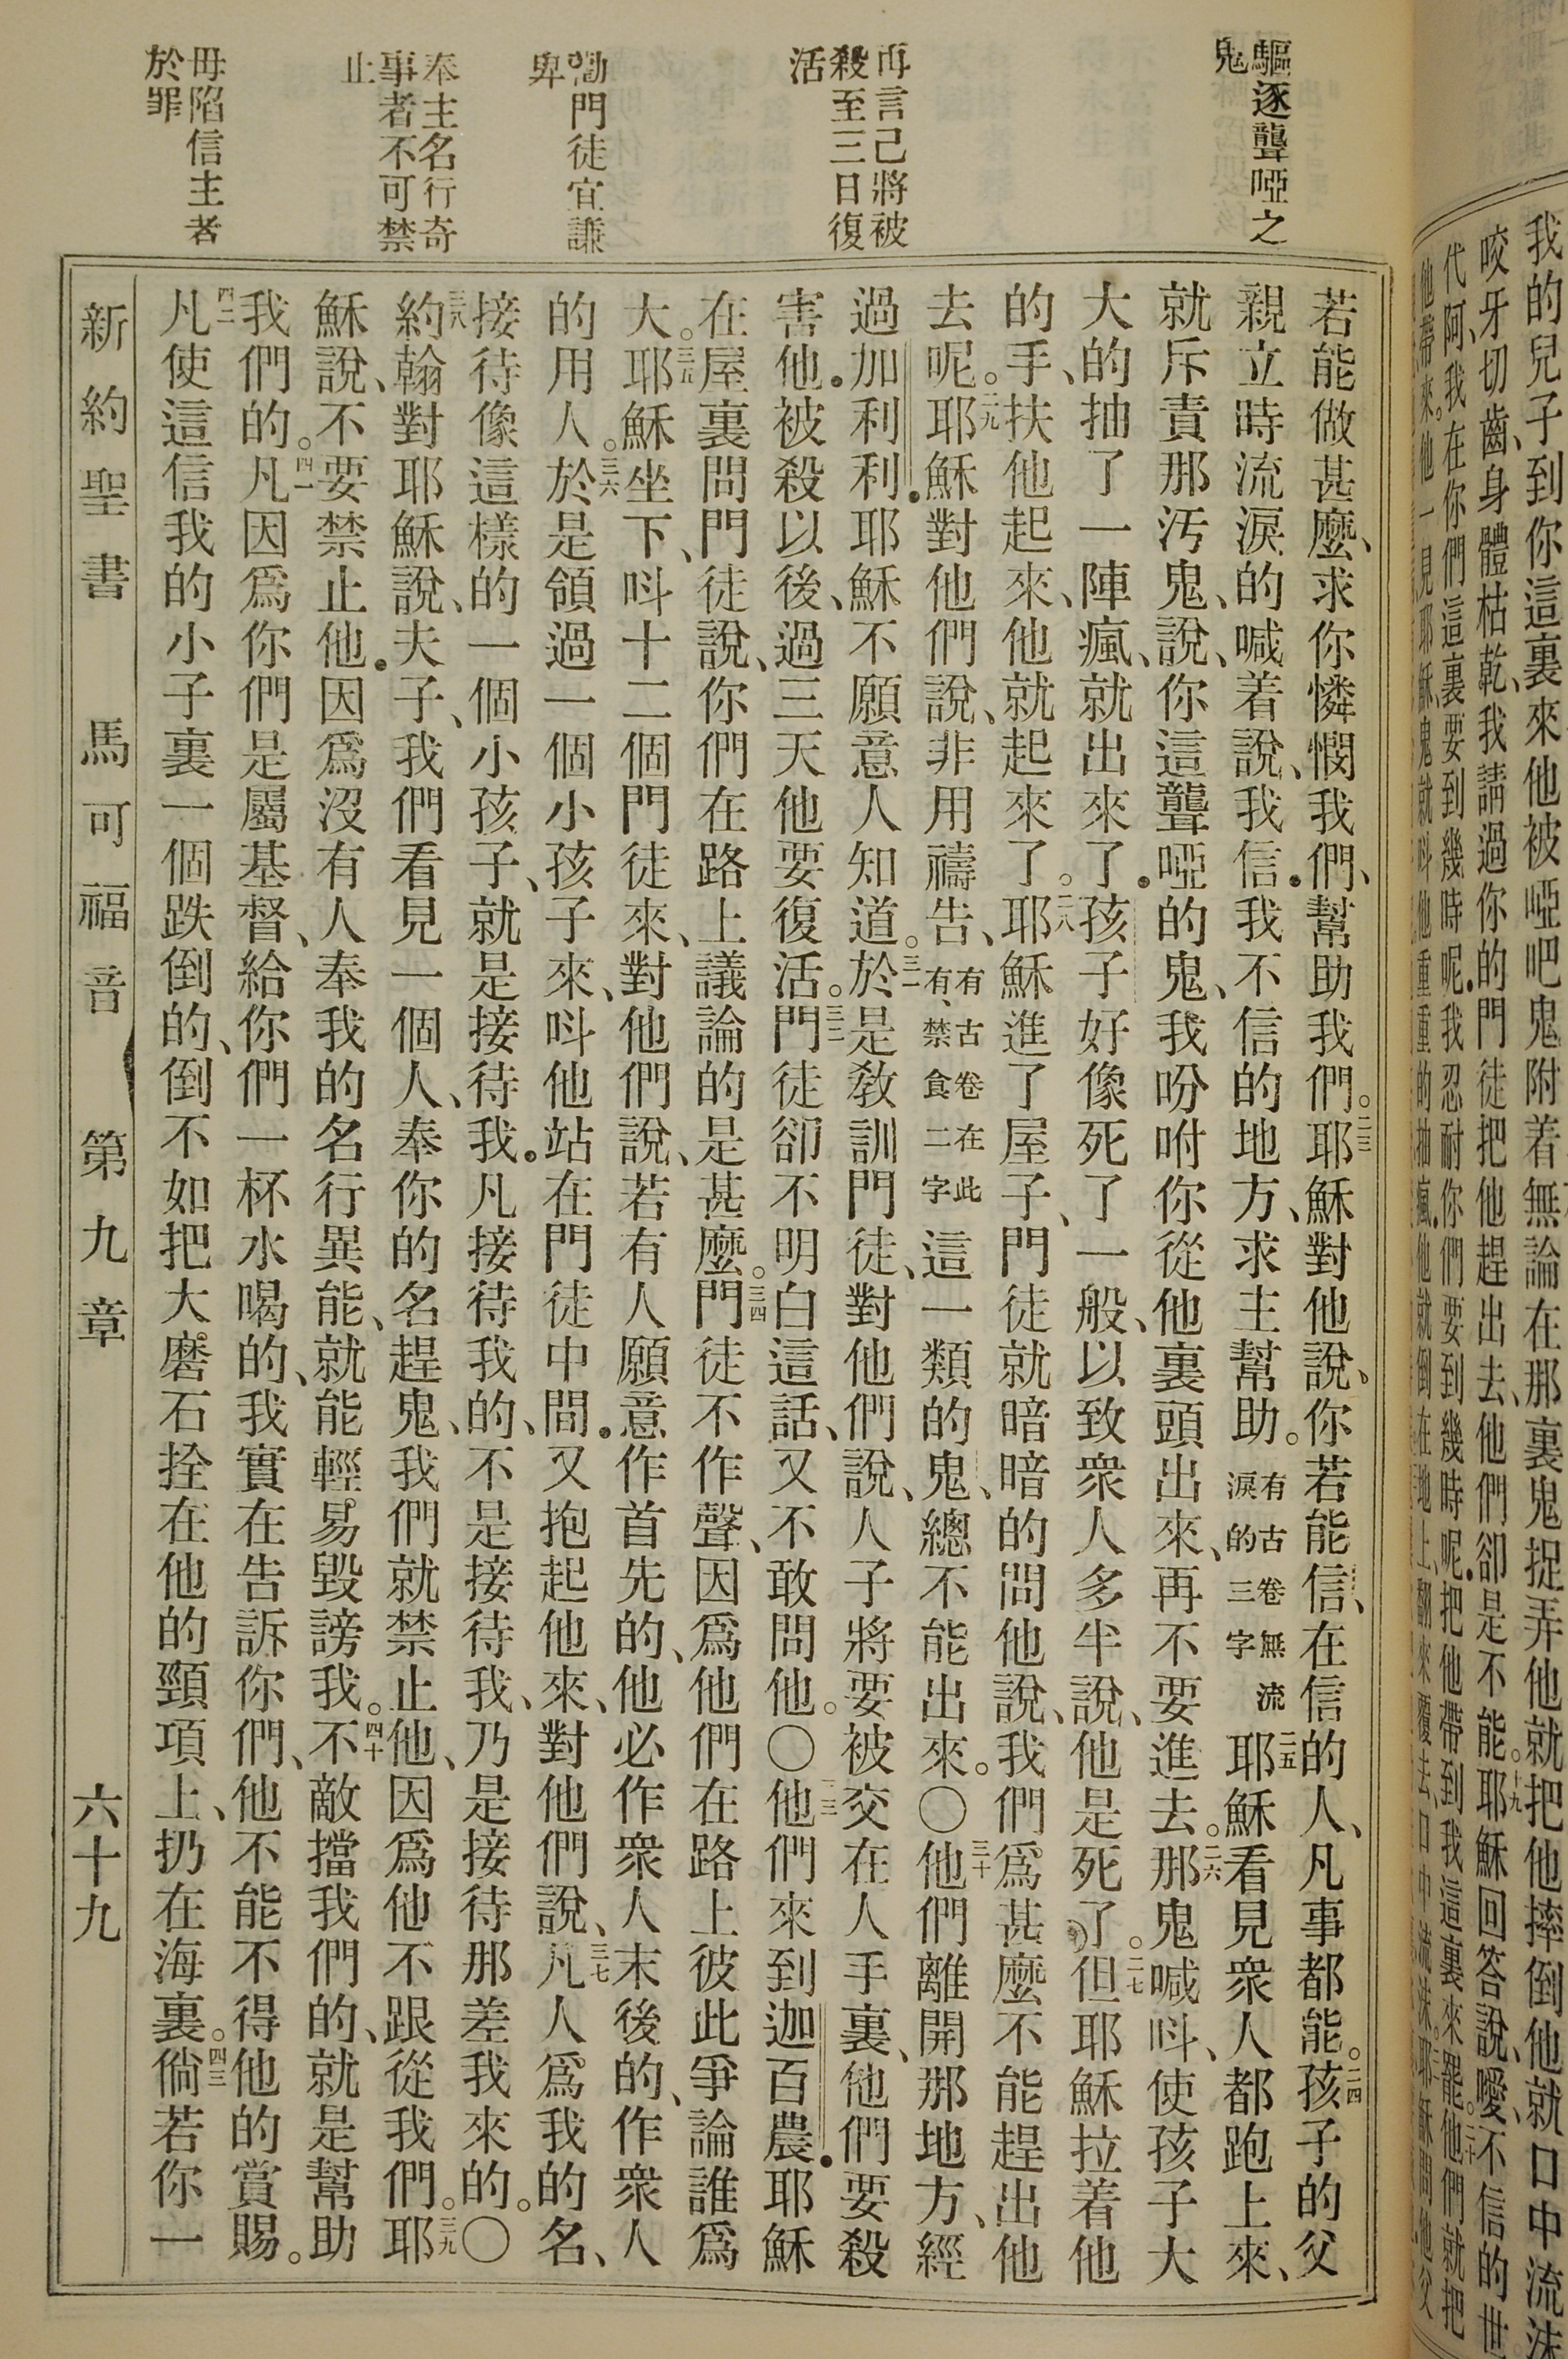 我的兒子到你這裏來他被啞吧鬼附着無論在那裏鬼捉弄他就把他摔倒他就口中流沫
咬牙切齒、身體枯乾、我請過你的門徒把他趕出去、他們卻是不能。十九耶穌回答說、噯、不信的世
代阿、我在你們這裏要到幾時呢。我忍耐你們要到幾時呢。把他帶到我這裏來罷。二十他們就把
他帶來。他一見耶穌、鬼就呌他重重的抽瘋。他就倒在地上、翻來覆去、口中流沫。耶穌問他父
驅逐聾啞之
鬼
再言己將被
殺至三日復
活
勖門徒宜謙
卑
奉主名行奇
事者不可禁
止
毋陷信主者
於罪
若能做甚麼、求你憐憫我們、幫助我們。二三耶穌對他說、你若能信、在信的人、凡事都能。二四孩子的父
親立時流淚的喊着說、我信。我不信的地方、求主幫助。有古卷無流淚的三字二五耶穌看見衆人都跑上來、
就斥責那汚鬼、說、你這聾啞的鬼、我吩咐你從他裏頭出來、再不要進去。二六那鬼喊呌、使孩子大
大的抽了一陣瘋、就出來了。孩子好像死了一般、以致衆人多半說、他是死了。二七但耶穌拉着他
的手、扶他起來、他就起來了。二八耶穌進了屋子、門徒就暗暗的問他說、我們爲甚麼不能趕出他
去呢。二九耶穌對他們說、非用禱告、有古卷在此有、禁食二字這一類的鬼、總不能出來。〇三十他們離開那地方、經
過加利利。耶穌不願意人知道。三一於是敎訓門徒、對他們說、人子將要被交在人手裏、他們要殺
害他。被殺以後、過三天他要復活。三二門徒卻不明白這話、又不敢問他。〇三三他們來到迦百農。耶穌
在屋裏問門徒說、你們在路上議論的是甚麼。三四門徒不作聲、因爲他們在路上彼此爭論誰爲
大。三五耶穌坐下、呌十二個門徒來、對他們說、若有人願意作首先的、他必作衆人末後的、作衆人
的用人。三六於是領過一個小孩子來、呌他站在門徒中間。又抱起他來、對他們說、三七凡人爲我的名、
接待像這樣的一個小孩子、就是接待我。凡接待我的、不是接待我、乃是接待那差我來的。〇
三八約翰對耶穌說、夫子、我們看見一個人、奉你的名趕鬼、我們就禁止他、因爲他不跟從我們。三九耶
穌說、不要禁止他。因爲沒有人奉我的名行異能、就能輕易毀謗我。四十不敵擋我們的、就是幫助
我們的。四一凡因爲你們是屬基督、給你們一杯水喝的、我實在告訴你們、他不能不得他的賞賜。
四二凡使這信我的小子裏一個跌倒的、倒不如把大磨石拴在他的頸項上、扔在海裏。四三倘若你一
新約聖書 馬可福音 第九章 六十九